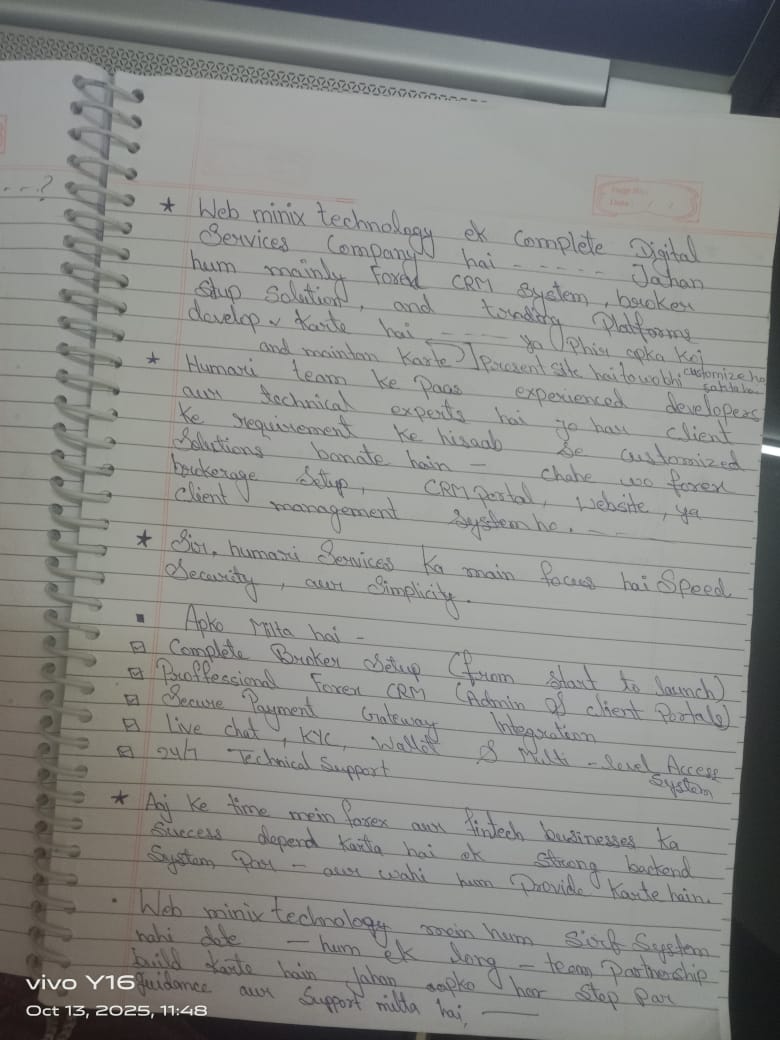 ---?
* Web minix technology ek Complete Digital
Services Company hai ----- Jahan
hum mainly Forex CRM System, broker
stup Solution, and trading Platforms
develop Karte hai ---- ya Phir apka koi
and maintan Karte Present site hai to wo bhi customize ho
sakta hai
* Humari team ke Paas experienced developers
aur technical experts hai jo har client
ke requirement ke hisaab se customized
Solutions banate hain - chahe wo forex
brokerage Setup, CRM portal, Website, ya
client management System ho. ----
* Sir, humari Services Ka main focus hai Speed
Security, aur Simplicity.
▪ Apko Milta hai -
Complete Broker Setup (from start to launch)
Proffessional Forex CRM (Admin & client Portals)
Secure Payment Gateway Integration
Live chat, KYC, Wallet & Multi-level Access
System
24/7 Technical Support
* Aaj Ke time mein forex aur fintech businesses Ka
Success depend Karta hai ek strong backend
System Par - aur wahi hum Provide Karte hain.
• Web minix technology main hum Sirf System
nahi dete - hum ek long-team Partnership
build Karte hain Jahan aapko har Step Par
guidance aur Support milta hai,
vivo Y16
Oct 13, 2025, 11:48